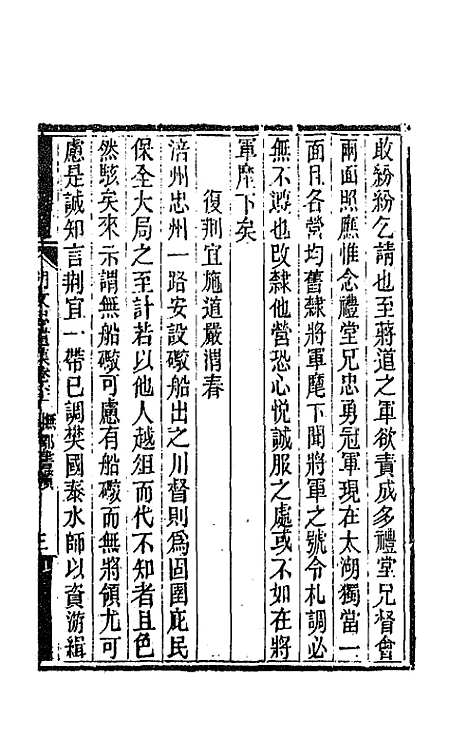 敢紛紛乞請也至蔣道之軍欲責成多禮堂兄督會
兩面照應惟念禮堂兄忠勇冠軍現在太湖獨當一
面且各營均舊隸將軍麾下聞將軍之號令札調必
無不遵也改隸他營恐心悅誠服之處或不如在將
軍麾下矣
復荆宜施道嚴渭春
涪州忠州一路安設礮船出之川督則為固圉庇民
保全大局之至計若以他人越俎而代不知者且色
然駭矣來示謂無船礮可慮有船礮而無將領尤可
慮是誠知言荆宜一帶已調樊國泰水師以資游緝
胡文忠公遺集卷六十 撫鄂書牘 三